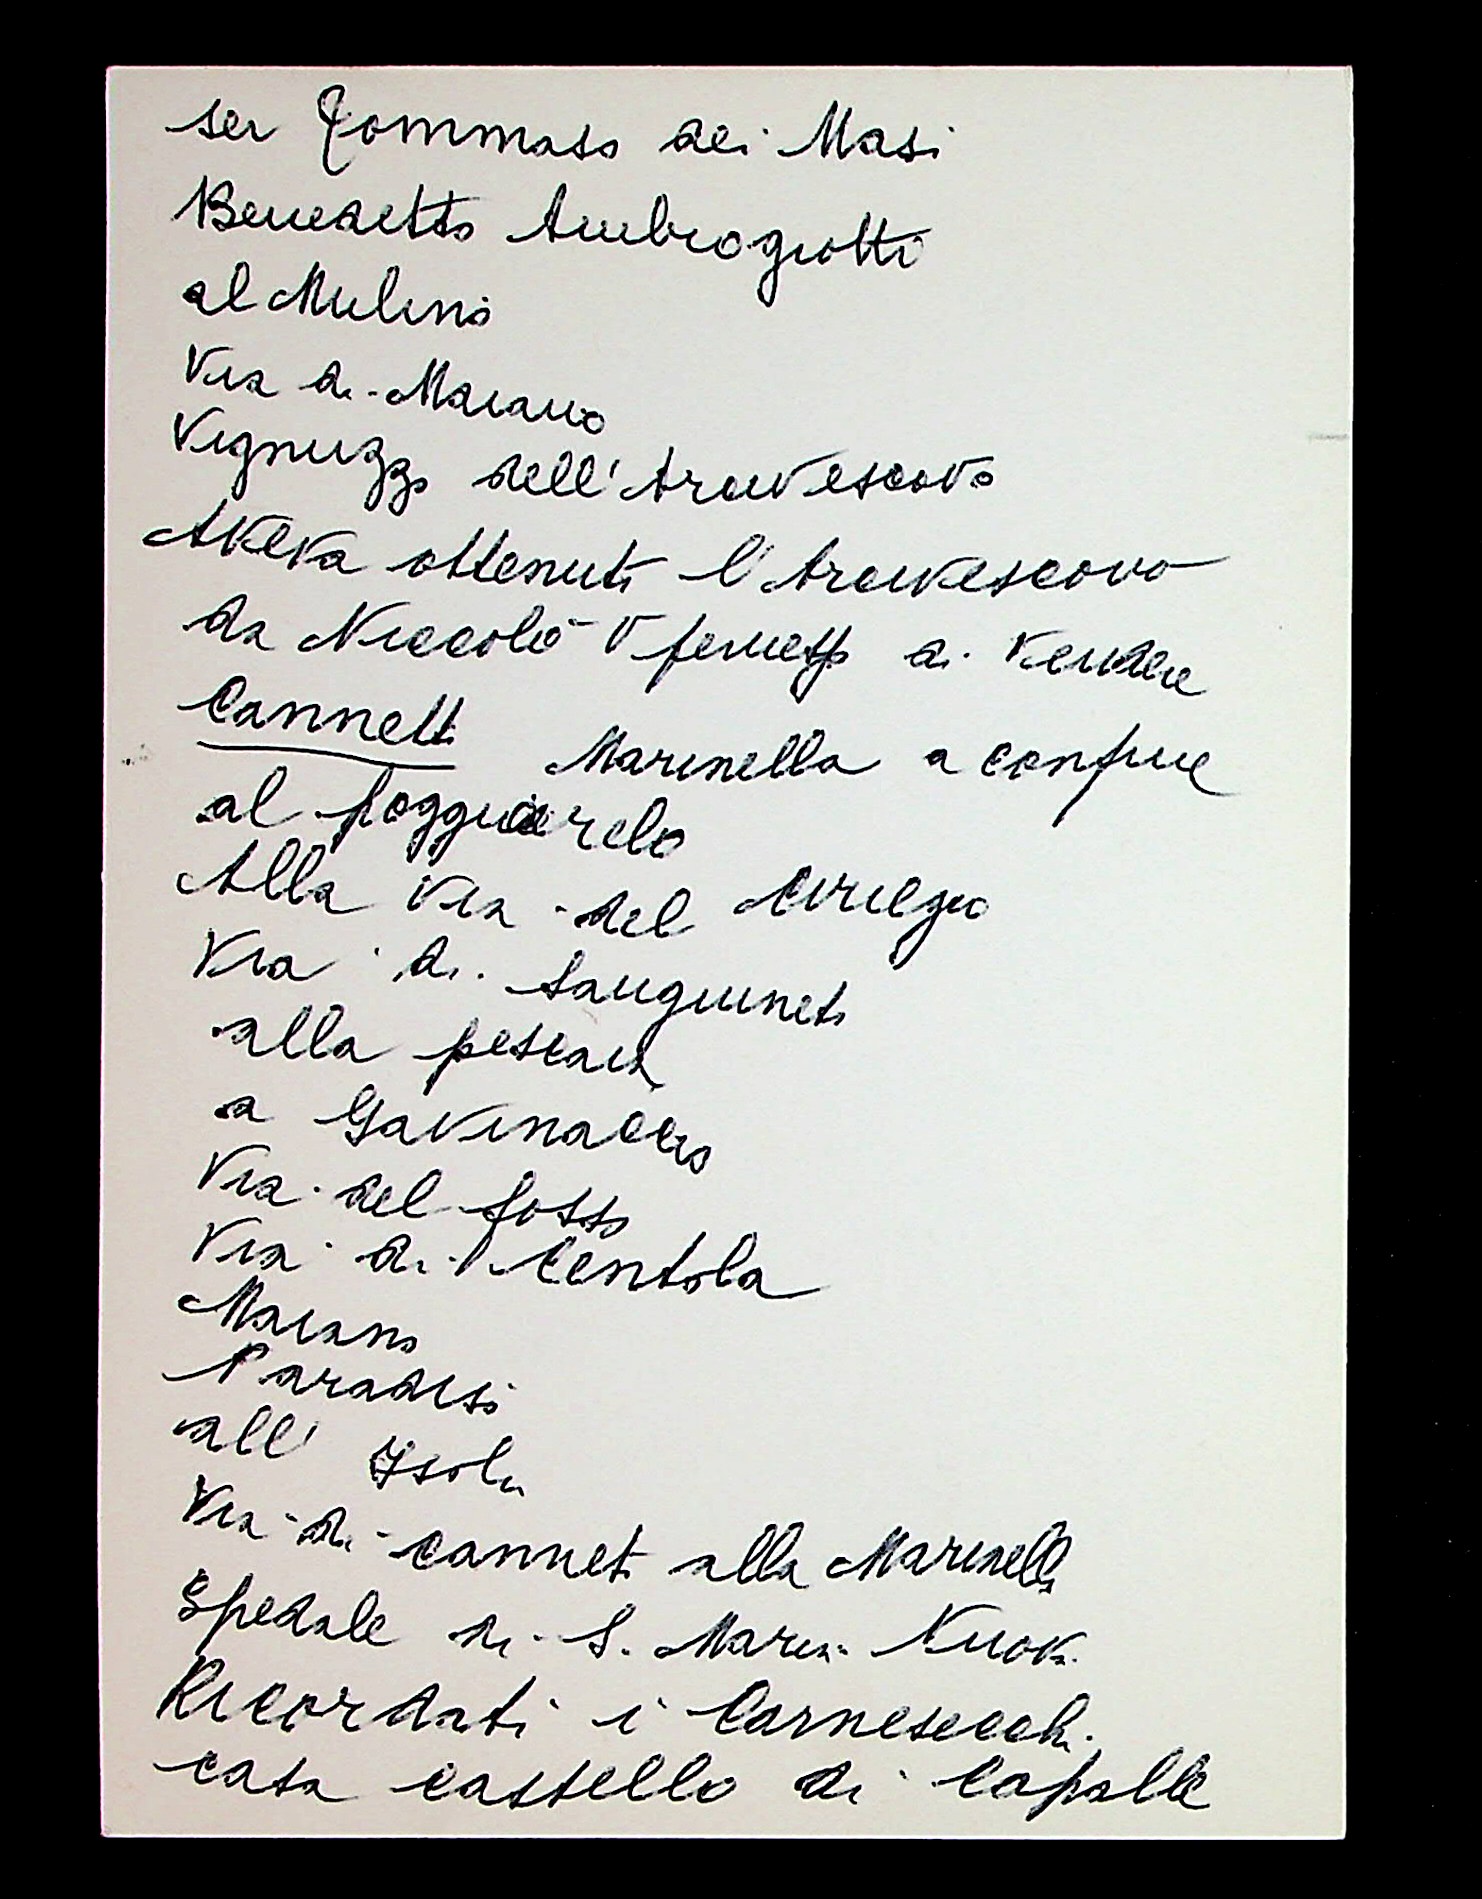 ser Tommaso dei Masi
Benedetto Ambrogiotti
al Mulino
Via di Maiano
Vignuzzo dell'Arcivescovo
Aveva ottenuto l'Arcivescovo
da Niccolò V permesso di vendere
Canneto Marinella a confine
al poggiarelo
Alla via del Ciriegio
Via di Sanguineto
alla pescaia
a Gavinaccio
Via del fosso
Via di Centola
Maiano
Paradiso
all' Isola
Via di canneto alla Marinella
Spedale di S. Maria Nuova
Ricordati i Carnesecchi
casa castello di Capalle